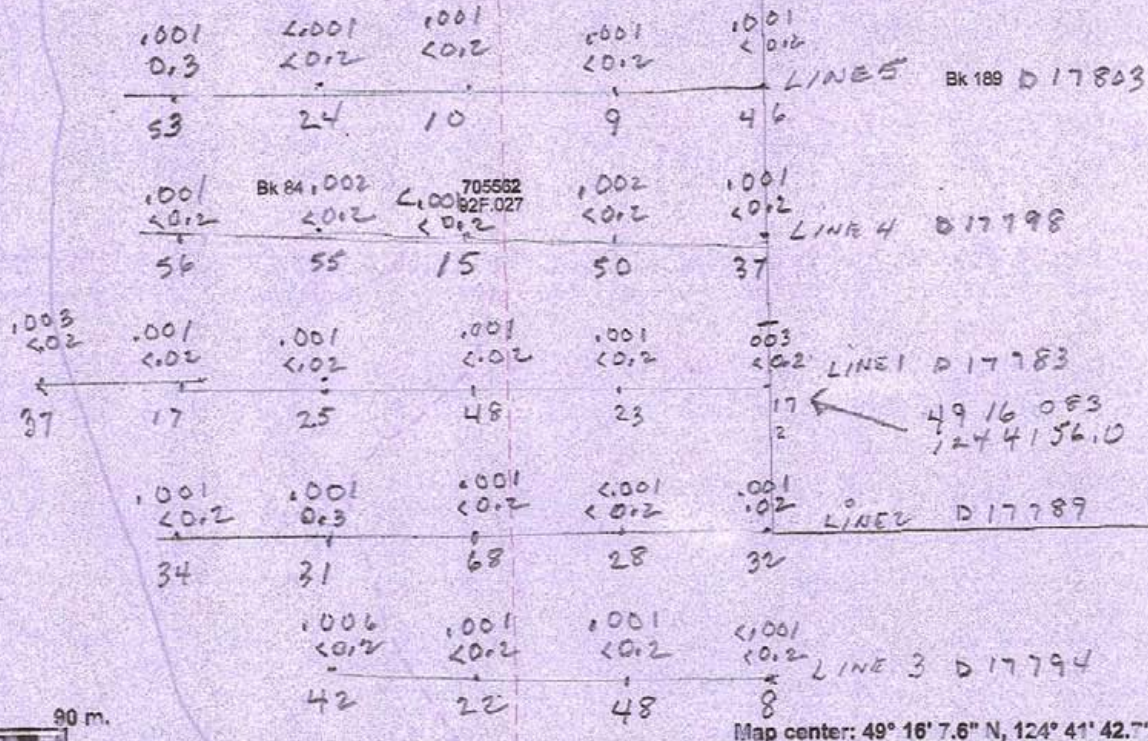 .001 <.001 .001 .001 .001
0.3 <0.2 <0.2 <0.2 <0.2
LINE 5 Bk 189 D 17803
53 24 10 9 46
.001 Bk 84 .002 <.001 705562 .002 .001
<0.2 <0.2 <0.2 92F.027 <0.2 <0.2
LINE 4 D 17798
56 55 15 50 37
.003 .001 .001 .001 .001 003
<.02 <.02 <.02 <.02 <0.2 <0.2 LINE 1 D 17783
37 17 25 48 23 17
2
49 16 083
124 41 56.0
.001 .001 .001 <.001 .001
<0.2 0.3 <0.2 <0.2 .02 LINE 2 D 17789
34 31 68 28 32
.006 .001 .001 <.001
<0.2 <0.2 <0.2 <0.2 LINE 3 D 17794
42 22 48 8
90 m.
Map center: 49° 16' 7.6" N, 124° 41' 42.7"